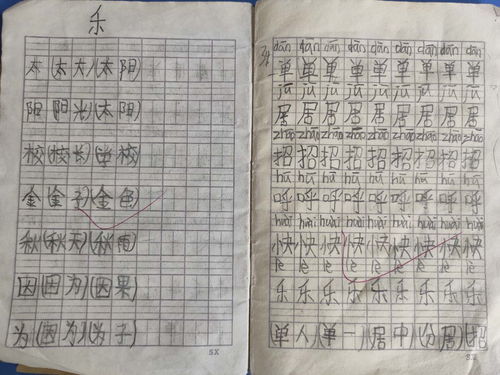 乐
太(太大)(太阳)
阳(阳光)(太阳)
校(校长)(学校)
金(金子)(金色)
秋(秋天)(秋
因(因为)(因果)
为(因为)(为子)
dān dān dān dān dān dān dān dān dān
单 单 单 单 单 单 单 单 单
jū jū jū jū jū jū jū jū jū
居 居 居 居 居 居 居 居 居
zhāo zhāo zhāo zhāo zhāo zhāo zhāo zhāo zhāo
招 招 招 招 招 招 招 招 招
hū hū hū hū hū hū hū hū hū
呼 呼 呼 呼 呼 呼 呼 呼 呼
kuài kuài kuài kuài kuài kuài kuài kuài kuài
快 快 快 快 快 快 快 快 快
lè lè lè lè lè lè lè lè lè
乐 乐 乐 乐 乐 乐 乐 乐 乐
单人)(单一)(居中)(分居)(招